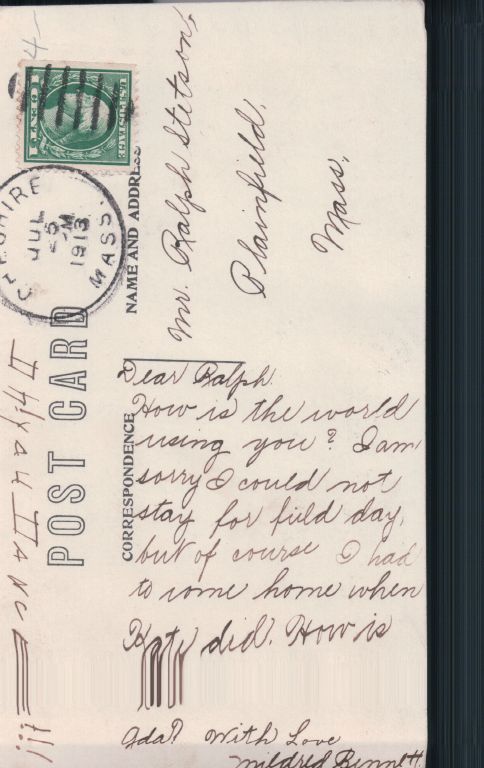 U.S. POSTAGE
1 CENT 1
CHESHIRE
JUL
25
M
1913
MASS.
POST CARD
NAME AND ADDRESS
Mr. Ralph Stetson,
Plainfield,
Mass.
CORRESPONDENCE
Dear Ralph.
How is the world
using you? I am
sorry I could not
stay for field day,
but of course I had
to come home when
Kate did. How is
Ada? With Love
Mildred Bennett.
!!!